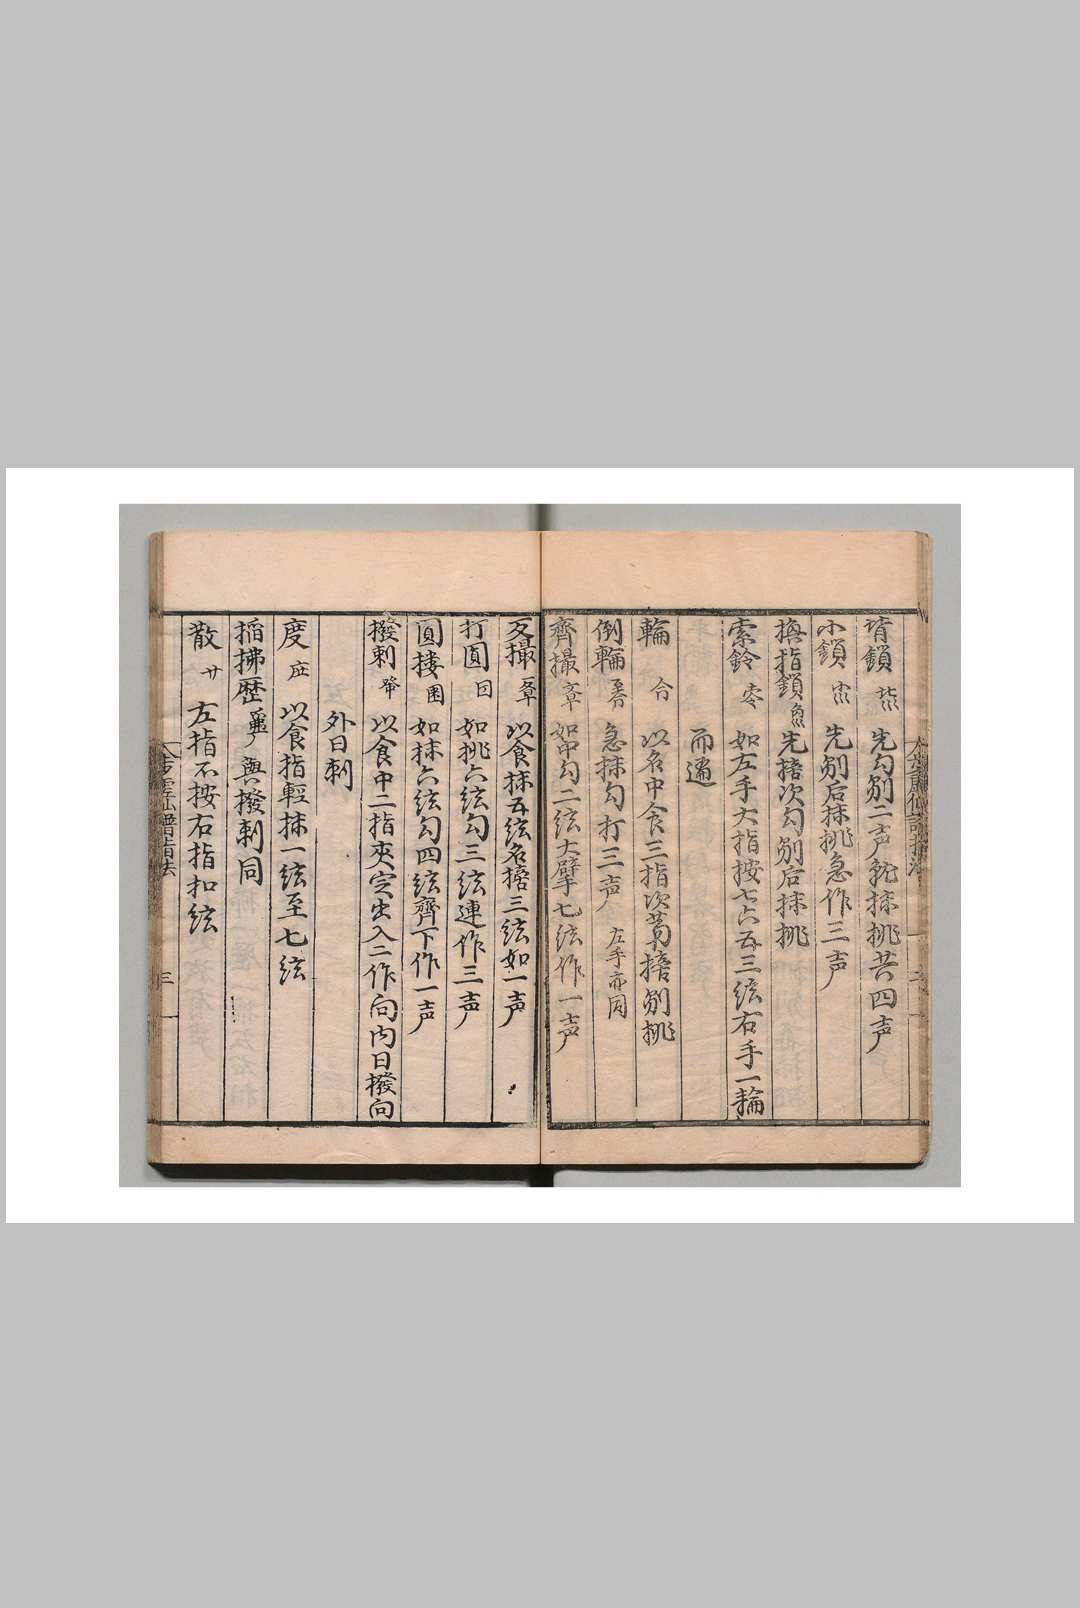 背鎖 先勾剔一声就抹挑共四声
小鎖 先剔后抹挑急作三声
換指鎖 先𢱢次勾剔后抹挑
索鈴 如左手大指按七六五三絃右手一輪
而過
輪 以名中食三指次第𢱢剔挑
倒輪 急抹勾打三声 左手亦同
齊撮 如中勾二絃大擘七絃作一声
反撮 以食抹五絃名𢱢三絃如一声
打圓 如挑六絃勾三絃連作三声
圓摟 如抹六絃勾四絃齊下作一声
撥剌 以食中二指夾定出入二作向内曰撥向
外曰剌
度 以食指輕抹一絃至七絃
搯拂歷 與撥剌同
散 左指不按右指扣絃
三